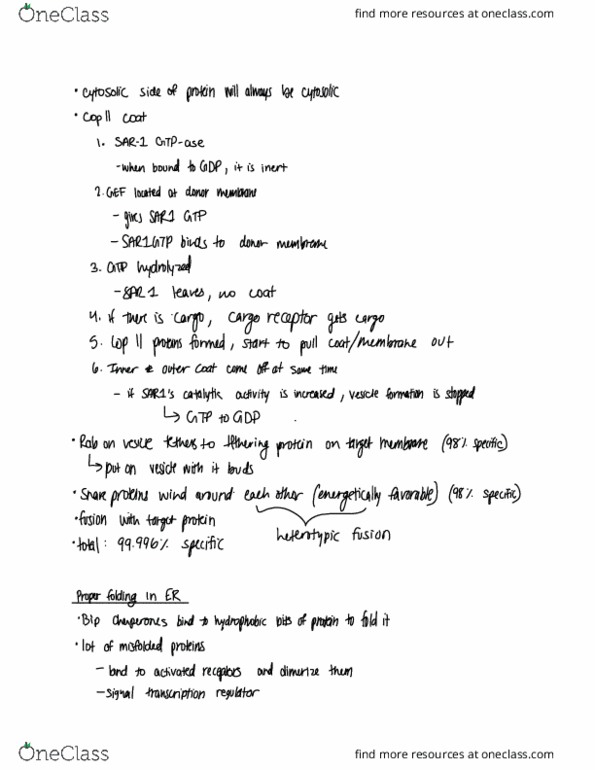 OneClass
find more resources at oneclass.com
• Cytosolic side of protein will always be cytosolic
• Cop II coat
1. SAR-1 GTP-ase
- when bound to GDP, it is inert
2. GEF located at donor membrane
- gives SAR1 GTP
- SAR1GTP binds to donor membrane
3. GTP hydrolyzed
- SAR 1 leaves, no coat
4. if there is cargo, cargo receptor gets cargo
5. Cop II proteins formed, start to pull coat/membrane out
6. Inner & outer coat come off at same time
- if SAR1's catalytic activity is increased, vesicle formation is stopped
↳ GTP to GDP
• Rab on vesicle tethers to tethering protein on target membrane (98% specific)
↳ put on vesicle with it buds
• Snare proteins wind around each other (energetically favorable) (98% specific)
• fusion with target protein
heterotypic fusion
• total: 99.996% specific
Proper folding in ER
• Bip chaperones bind to hydrophobic bits of protein to fold it
• lot of misfolded proteins
- bind to activated receptors and dimerize them
- signal transcription regulator
OneClass
find more resources at oneclass.com